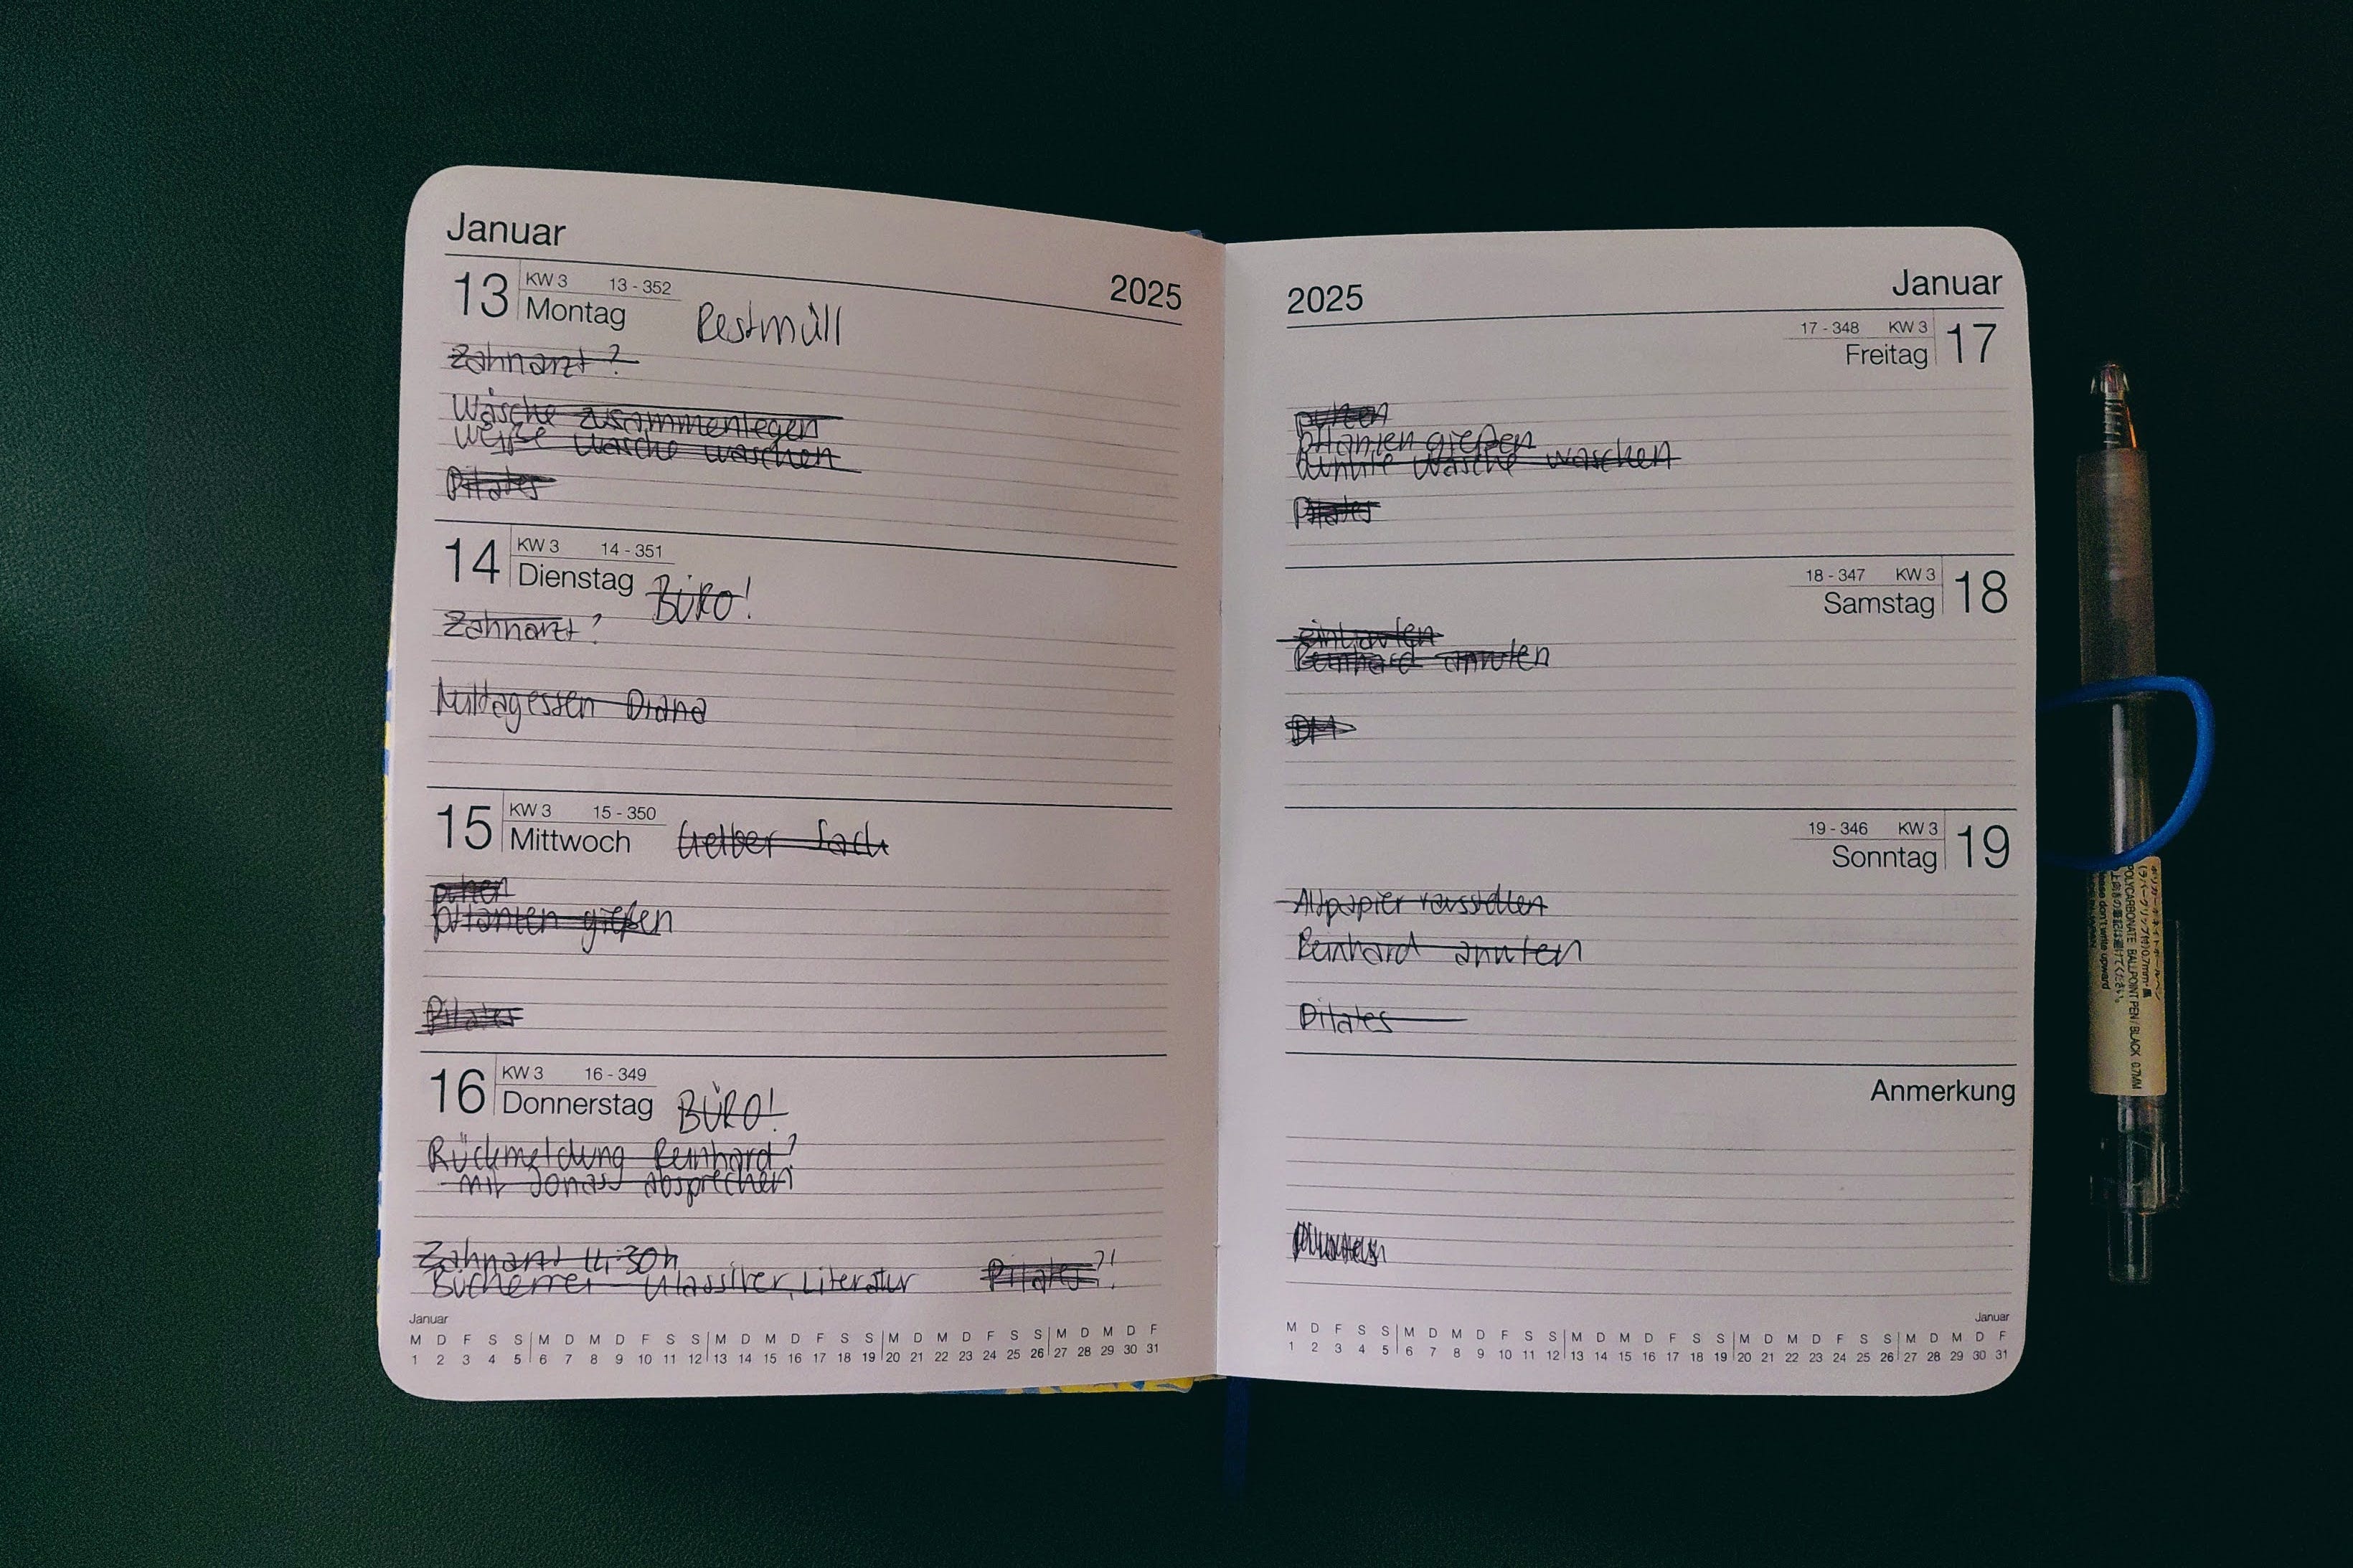 Januar
2025
13 KW 3 13 - 352
Montag Restmüll
Zahnarzt?
Wäsche zusammenlegen
weiße Wäsche waschen
Pilates
14 KW 3 14 - 351
Dienstag BÜRO!
Zahnarzt?
Mittagessen Diana
15 KW 3 15 - 350
Mittwoch Gelber Sack
putzen
pflanzen gießen
Pilates
16 KW 3 16 - 349
Donnerstag BÜRO!
Rückmeldung Reinhard?
mit Jonas absprechen
Zahnarzt 14:30h
Bücherei - Klassiker, Literatur Pilates?!
Januar
M D F S S M D M D F S S M D M D F S S M D M D F S S M D M D F
1 2 3 4 5 6 7 8 9 10 11 12 13 14 15 16 17 18 19 20 21 22 23 24 25 26 27 28 29 30 31
2025
Januar
17 - 348 KW 3 17
Freitag
putzen
pflanzen gießen
dunkle Wäsche waschen
Pilates
18 - 347 KW 3 18
Samstag
einkaufen
Reinhard anrufen
DM
19 - 346 KW 3 19
Sonntag
Altpapier rausstellen
Reinhard anrufen
Pilates
Anmerkung
Januar
M D F S S M D M D F S S M D M D F S S M D M D F S S M D M D F
1 2 3 4 5 6 7 8 9 10 11 12 13 14 15 16 17 18 19 20 21 22 23 24 25 26 27 28 29 30 31
POLYCARBONATE BALLPOINT PEN / BLACK 0.7MM
please don't write upward